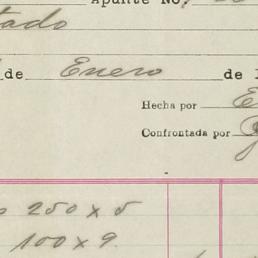 Apunte No.
tado
de Enero de
Hecha por
Confrontada por
250 x 5
100 x 9.